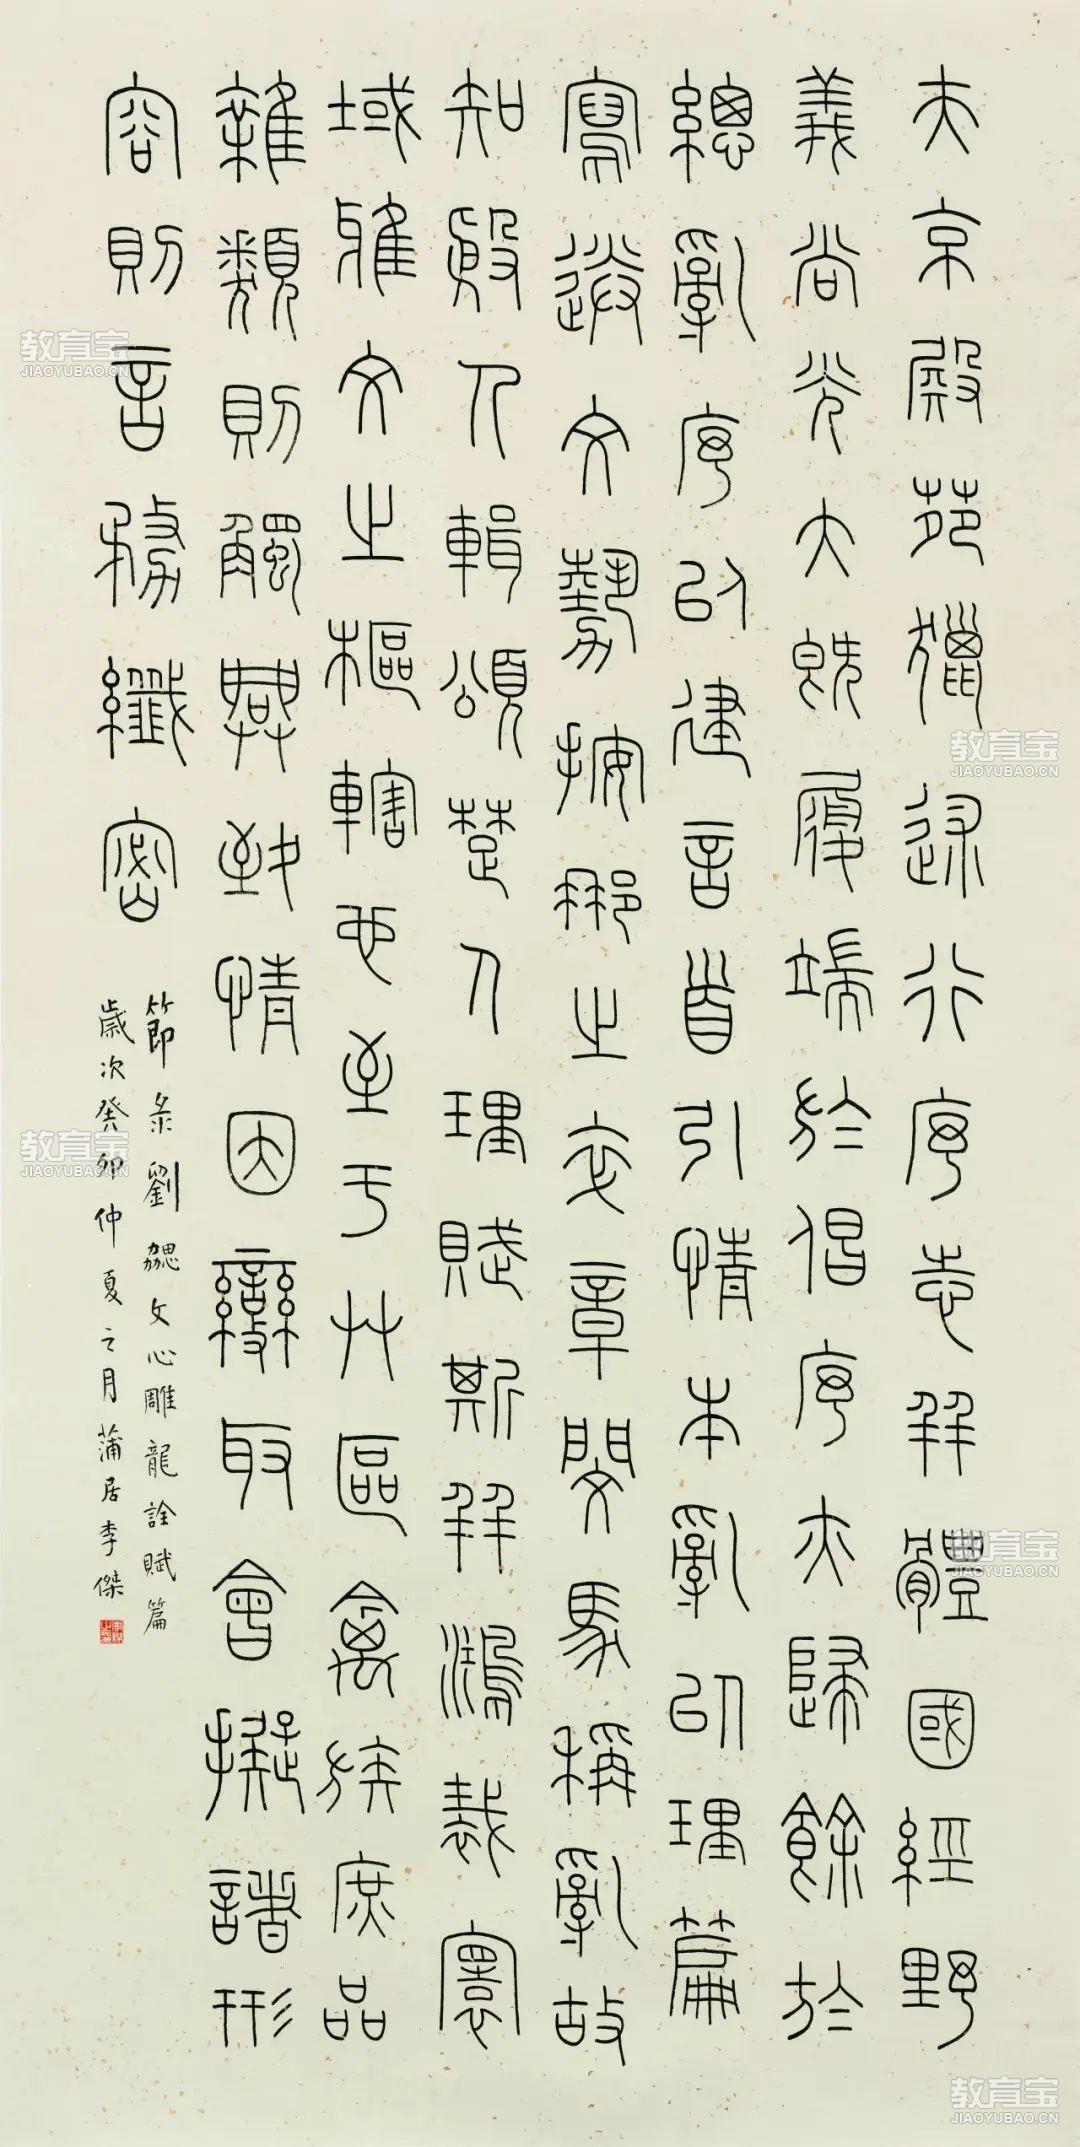 夫京殿苑獵述行序志并體國經野
義尚光大既履端於倡序亦歸餘於
總亂序以建言首引情本亂以理篇
寫送文勢按那之卒章閔馬稱亂故
知殷人輯頌楚人理賦斯并鴻裁寰
域雅文之樞轄也至于艸區禽族庶品
雜類則觸興致情因變取會擬諸形
容則言務纖密
節录劉勰文心雕龍詮賦篇
歲次癸卯仲夏之月蒲居李傑
教育宝
JIAOYUBAO.CN
教育宝
JIAOYUBAO.CN
教育宝
JIAOYUBAO.CN
教育宝
JIAOYUBAO.CN
教育宝
JIAOYUBAO.CN